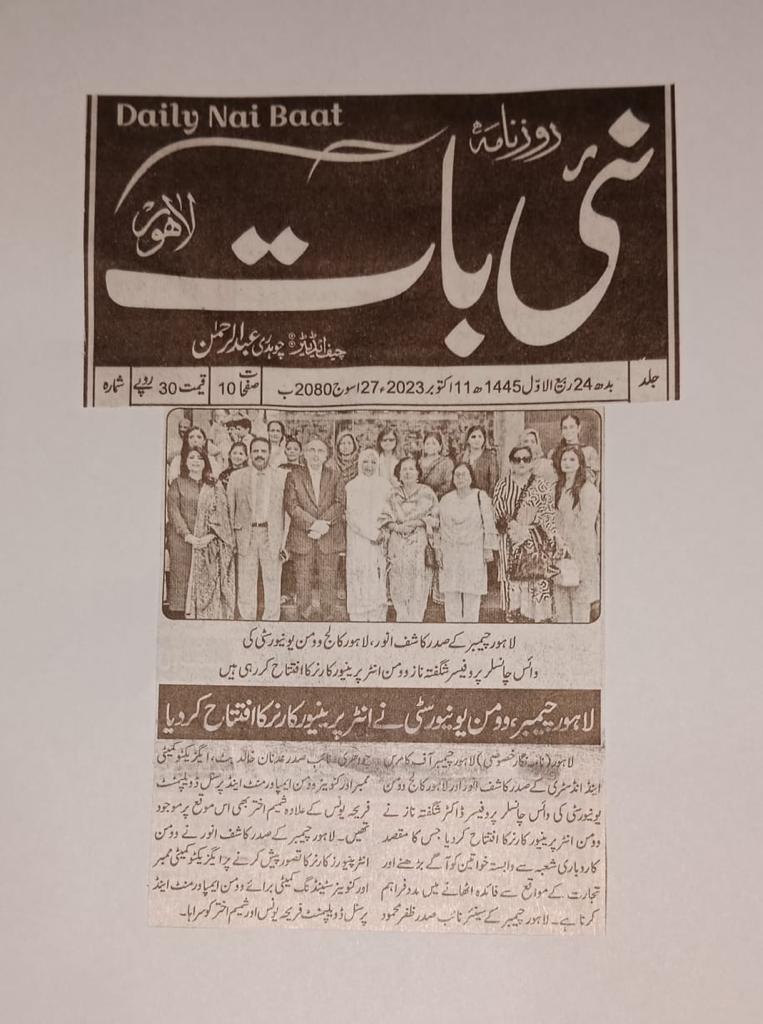 Daily Nai Baat
روزنامہ
نئی بات
لاہور
چیف ایڈیٹر: چوہدری عبدالرحمن
جلد
بدھ 24 ربیع الاوّل 1445ھ 11 اکتوبر 2023ء 27 اسوج 2080 ب
صفحات 10
قیمت 30 روپے
شمارہ
لاہور چیمبر کے صدر کاشف انور، لاہور کالج وومن یونیورسٹی کی
وائس چانسلر پروفیسر شگفتہ ناز وومن انٹرپرینیور کارنر کا افتتاح کر رہی ہیں
لاہور چیمبر، وومن یونیورسٹی نے انٹرپرینیور کارنر کا افتتاح کر دیا
لاہور (نامہ نگار خصوصی) لاہور چیمبر آف کامرس
اینڈ انڈسٹری کے صدر کاشف انور اور لاہور کالج وومن
یونیورسٹی کی وائس چانسلر پروفیسر ڈاکٹر شگفتہ ناز نے
وومن انٹرپرینیور کارنر کا افتتاح کر دیا جس کا مقصد
کاروباری شعبہ سے وابستہ خواتین کو آگے بڑھنے اور
تجارت کے مواقع سے فائدہ اٹھانے میں مدد فراہم
کرنا ہے۔ لاہور چیمبر کے سینئر نائب صدر ظفر محمود
چوہدری، نائب صدر عدنان خالد بٹ، ایگزیکٹو کمیٹی
ممبر اور کنوینر وومن ایمپاورمنٹ اینڈ پرسنل ڈویلپمنٹ
فریحہ یونس کے علاوہ شمیم اختر بھی اس موقع پر موجود
تھیں۔ لاہور چیمبر کے صدر کاشف انور نے وومن
انٹرپنیورز کارنر کا تصور پیش کرنے پر ایگزیکٹو کمیٹی ممبر
اور کنوینر سٹینڈنگ کمیٹی برائے وومن ایمپاورمنٹ اینڈ
پرسنل ڈویلپمنٹ فریحہ یونس اور شمیم اختر کو سراہا۔